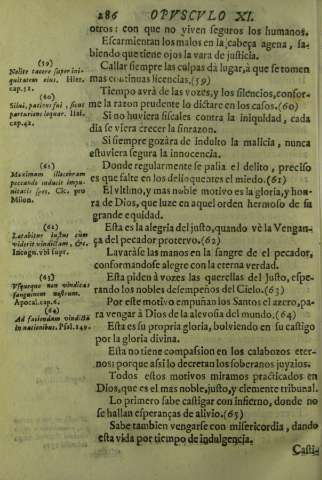 286 OPVSCVLO XI.
otros: con que no viven seguros los humanos.
Escarmientan los malos en la cabeça agena, sa-
biendo que tiene ojos la vara de justicia.
Callar siempre las culpas dà lugar, à que se tomen
mas continuas licencias. (59)
Tiempo avrà de las vozes, y los silencios, confor-
me la razon prudente lo dictare en los casos. (60)
Si no huviera fiscales contra la iniquidad, cada
dia se viera crecer la sinrazon.
Si siempre gozàra de indulto la malicia, nunca
estuviera segura la innocencia.
Donde regularmente se palia el delito, preciso
es que falte en los delinquentes el miedo. (61)
El vltimo, y mas noble motivo es la gloria, y hon-
ra de Dios, que luze en aquel orden hermoso de su
grande equidad.
Esta es la alegria del justo, quando vè la Vengan-
ça del pecador protervo. (62)
Lavaràse las manos en la sangre de el pecador,
conformandose alegre con la eterna verdad.
Esta piden à vozes las querellas del Justo, espe-
rando los nobles desempeños del Cielo. (63)
Por este motivo empuñan los Santos el azero, pa-
ra vengar à Dios de la alevosia del mundo. (64)
Esta es su propria gloria, bolviendo en su castigo
por la gloria divina.
Esta no tiene compasion en los calabozos eter-
nos: porque assi lo decretan los soberanos juyzios.
Todos estos motivos miramos practicados en
Dios, que es el mas noble, justo, y clemente tribunal.
Lo primero sabe castigar con infierno, donde no
se hallan esperanças de alivio. (65)
Sabe tambien vengarse con misericordia, dando
esta vida por tiempo de indulgencia.
Casti-
(59)
Nolite tacere super ini-
quitatem eius. Hier.
cap. 51.
(60)
Silui, patiens fui, sicut
parturiens loquar. Isai.
cap. 42.
(61)
Maximam illecebram
peccandi inducit impu-
nitatis spes. Cic. pro
Milon.
(62)
Lætabitur iustus cùm
viderit vindictam, &c.
Incogn. vbi supr.
(63)
Vsquequo non vindicas
sanguinem nostrum.
Apocal. cap. 6.
(64)
Ad faciendam vindictã
in nationibus. Psal. 149.